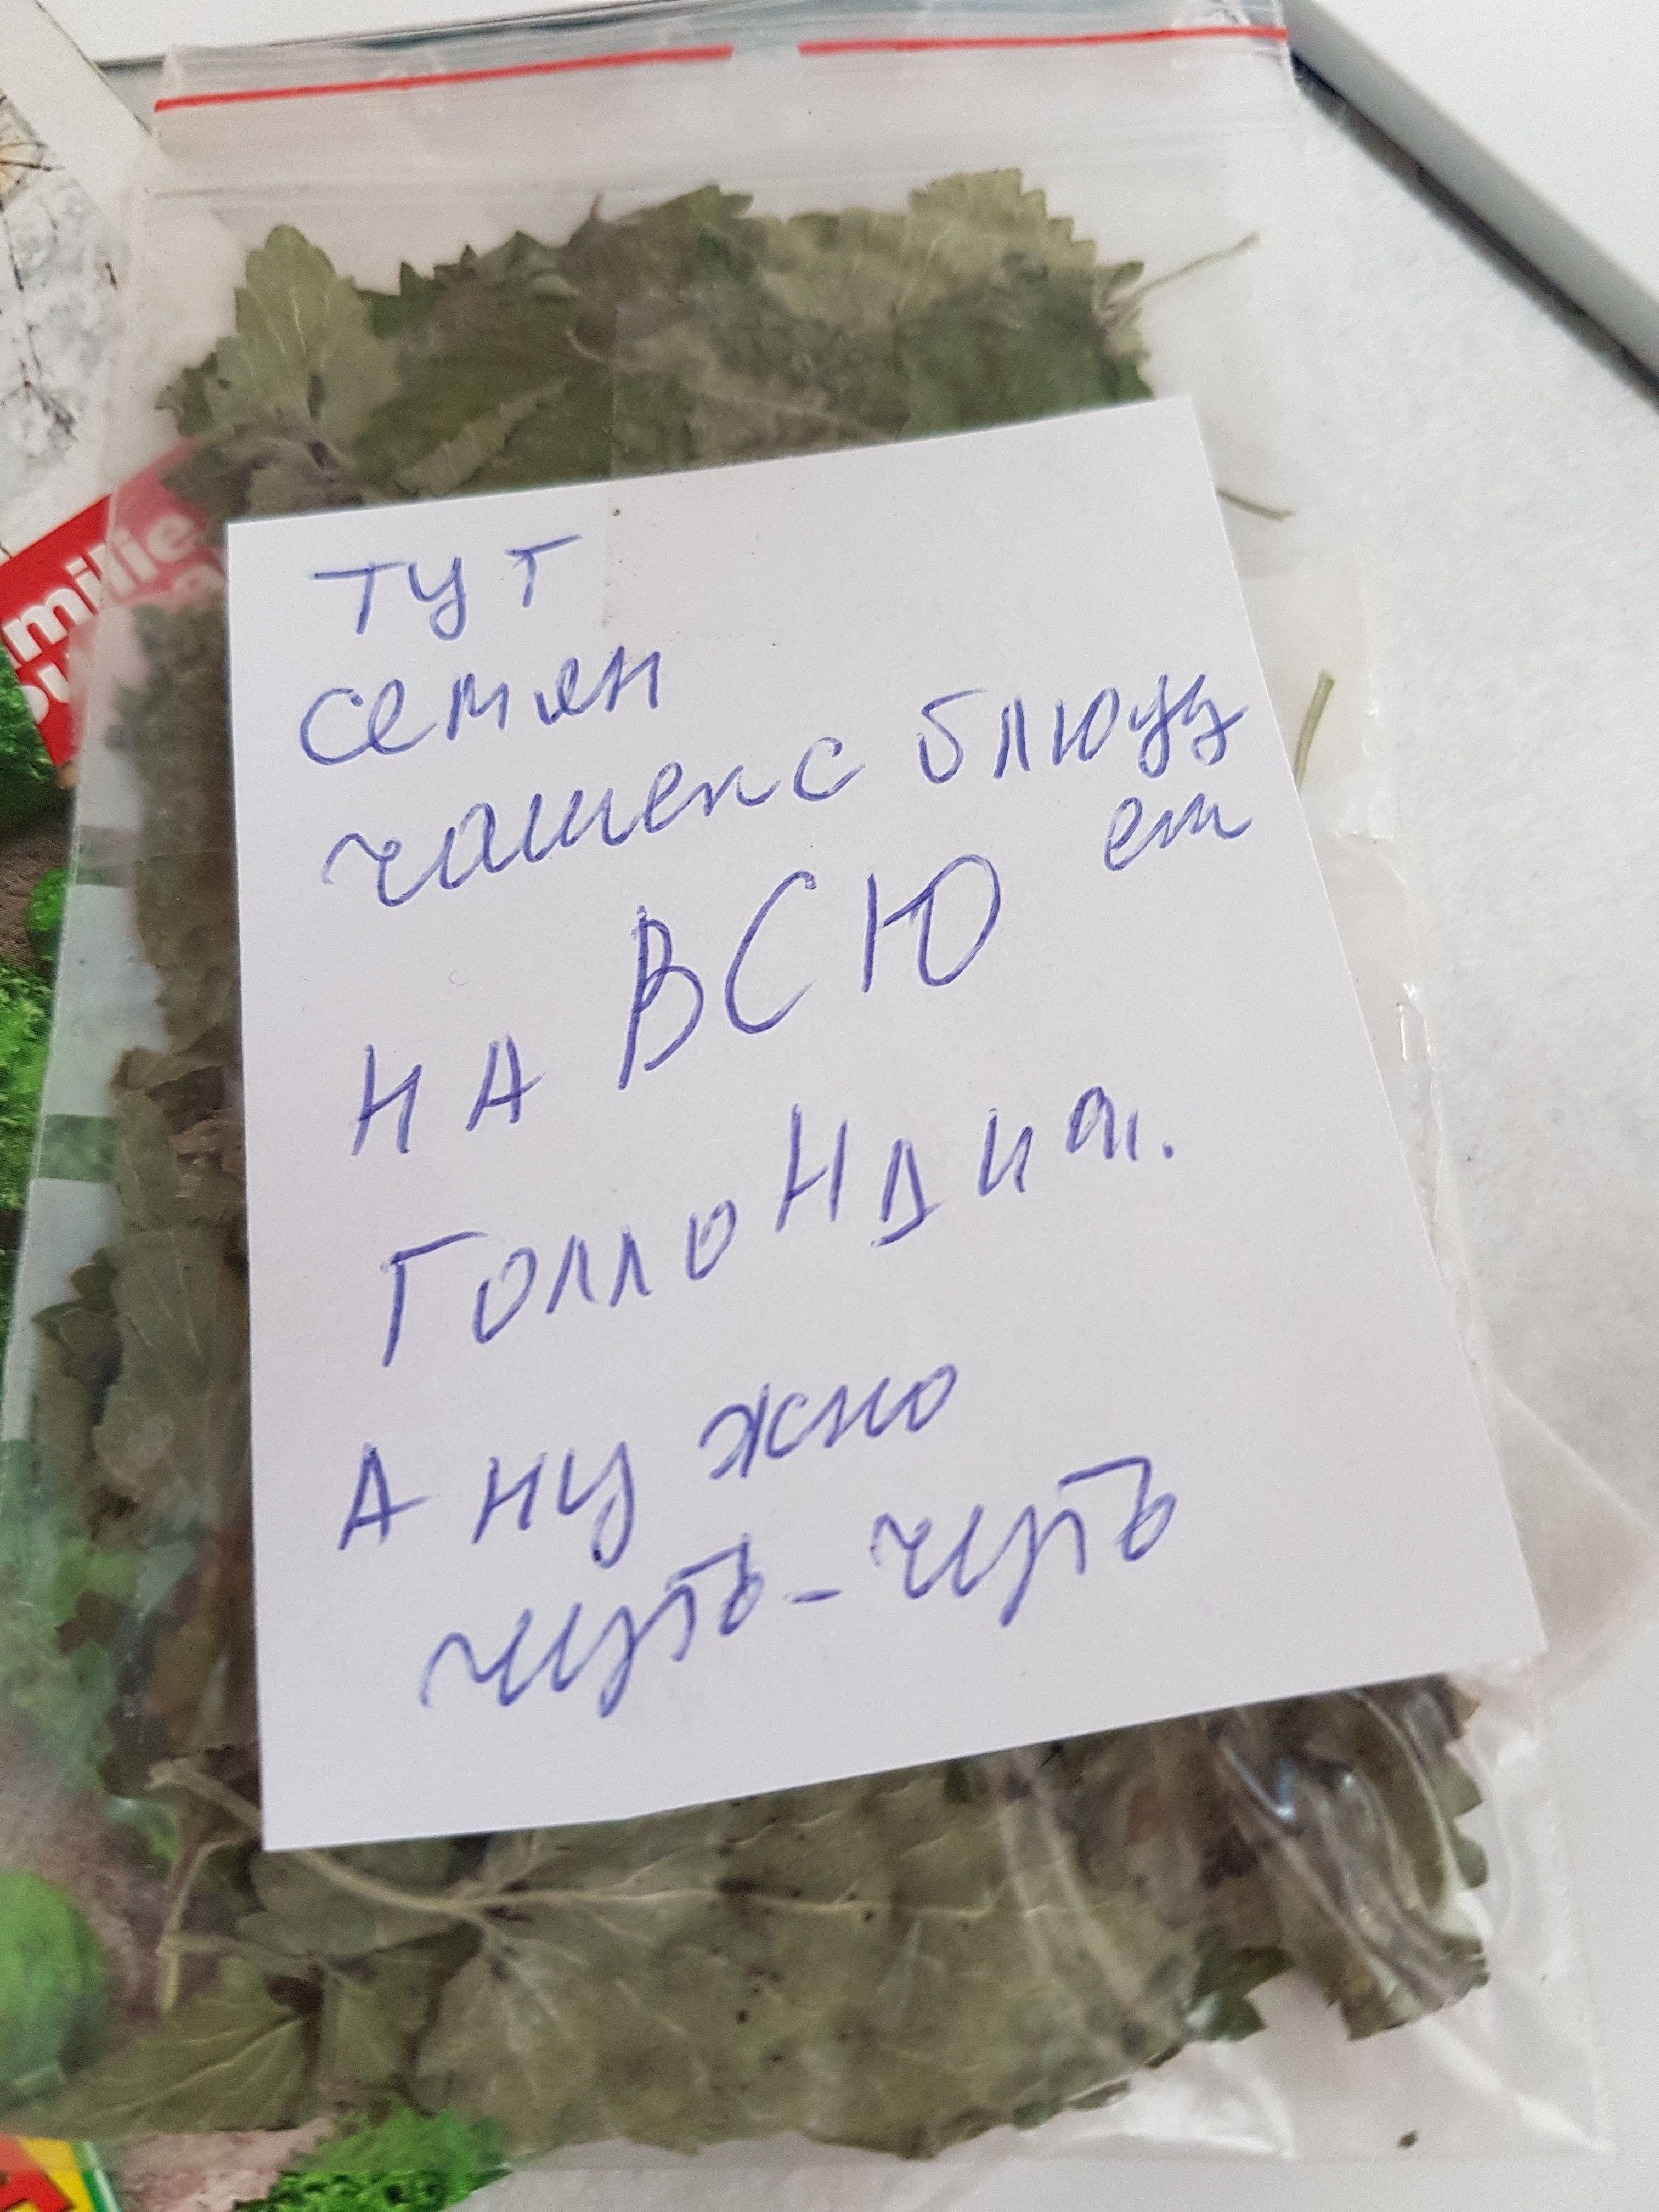 тут
семян
чашек с блюдц
ем
НА ВСЮ
ГоллоНдия.
А нужно
чуть-чуть
milie